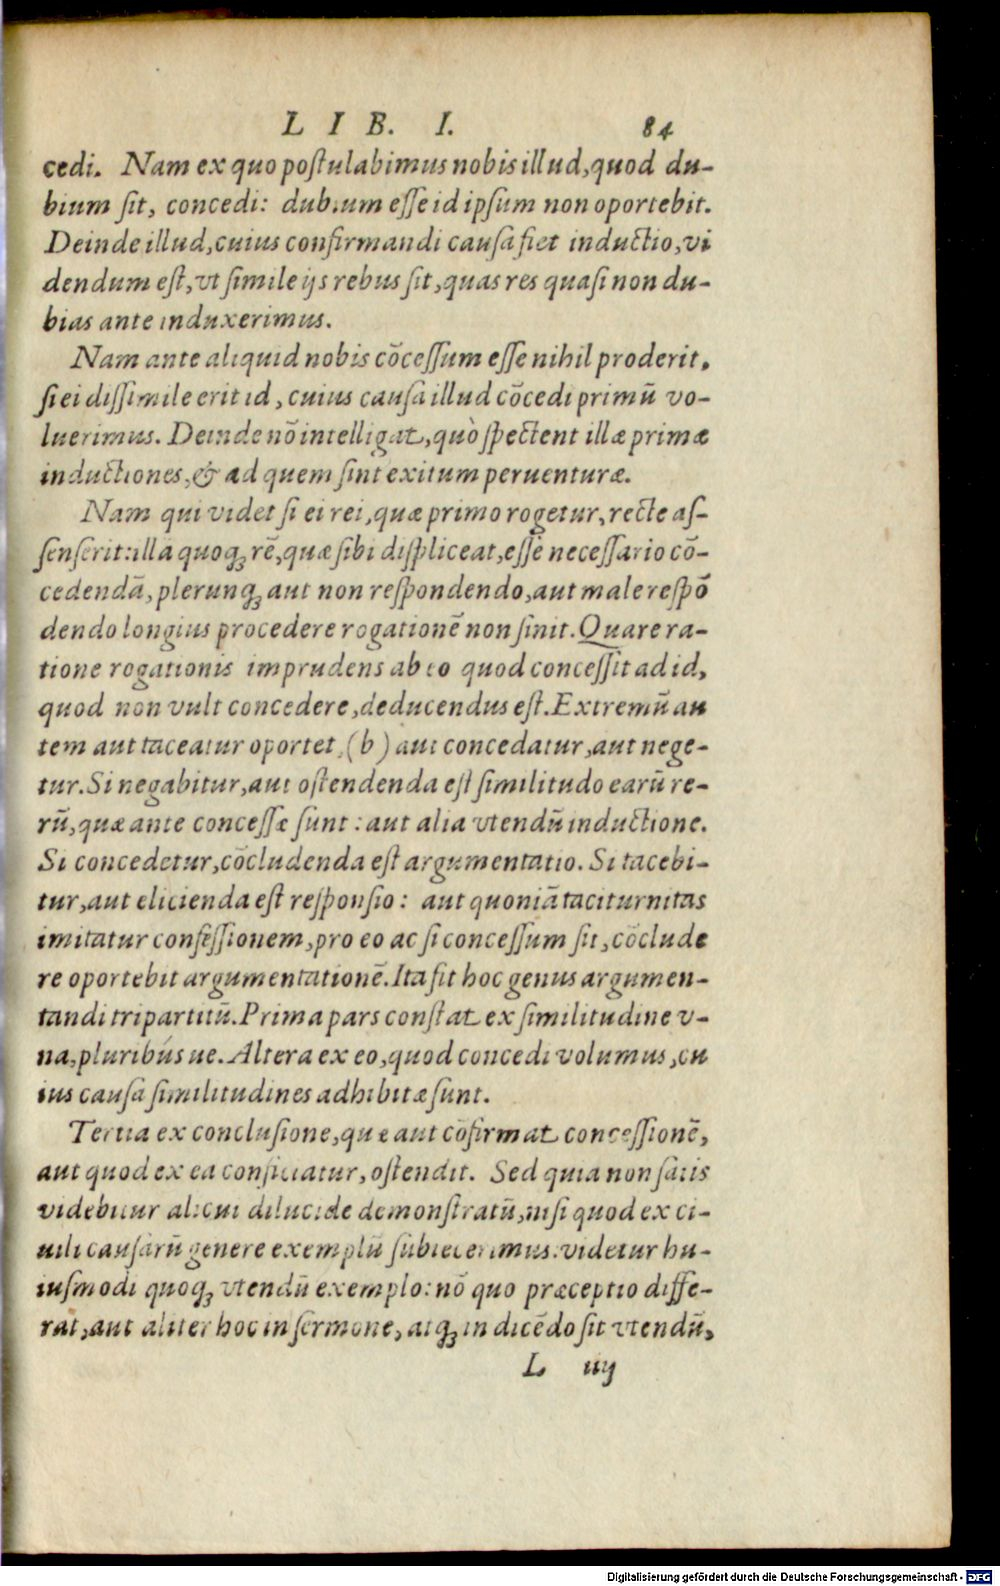 LIB. I. 84
cedi. Nam ex quo postulabimus nobis illud, quod du-
bium sit, concedi: dubium esse id ipsum non oportebit.
Deinde illud, cuius confirmandi causa fiet inductio, vi
dendum est, vt simile ijs rebus sit, quas res quasi non du-
bias ante induxerimus.
Nam ante aliquid nobis cōcessum esse nihil proderit,
si ei dissimile erit id, cuius causa illud cōcedi primū vo-
luerimus. Deinde nō intelligat, quò spectent illæ primæ
inductiones, & ad quem sint exitum peruenturæ.
Nam qui videt si ei rei, quæ primo rogetur, recte as-
senserit: illā quoqꝫ rē, quæ sibi displiceat, esse necessario cō-
cedendā, plerunqꝫ aut non respondendo, aut male respō
dendo longius procedere rogationē non sinit. Quare ra-
tione rogationis imprudens ab eo quod concessit ad id,
quod non vult concedere, deducendus est. Extremū au
tem aut taceatur oportet, (b) aut concedatur, aut nege-
tur. Si negabitur, aut ostendenda est similitudo earū re-
rū, quæ ante concessæ sunt: aut alia vtendū inductione.
Si concedetur, cōcludenda est argumentatio. Si tacebi-
tur, aut elicienda est responsio: aut quoniā taciturnitas
imitatur confessionem, pro eo ac si concessum sit, cōclude
re oportebit argumentationē. Ita fit hoc genus argumen-
tandi tripartitū. Prima pars constat ex similitudine v-
na, pluribúsue. Altera ex eo, quod concedi volumus, cu
ius causa similitudines adhibitæ sunt.
Tertia ex conclusione, quæ aut cōfirmat concessionē,
aut quod ex ea conficiatur, ostendit. Sed quia non satis
videbitur alicui dilucide demonstratū, nisi quod ex ci-
uili causarū genere exemplū subiecerimus: videtur hu-
iusmodi quoqꝫ vtendū exemplo: nō quo præceptio diffe-
rat, aut aliter hoc in sermone, atqꝫ in dicēdo sit vtendū,
L iiij
Digitalisierung gefördert durch die Deutsche Forschungsgemeinschaft - DFG